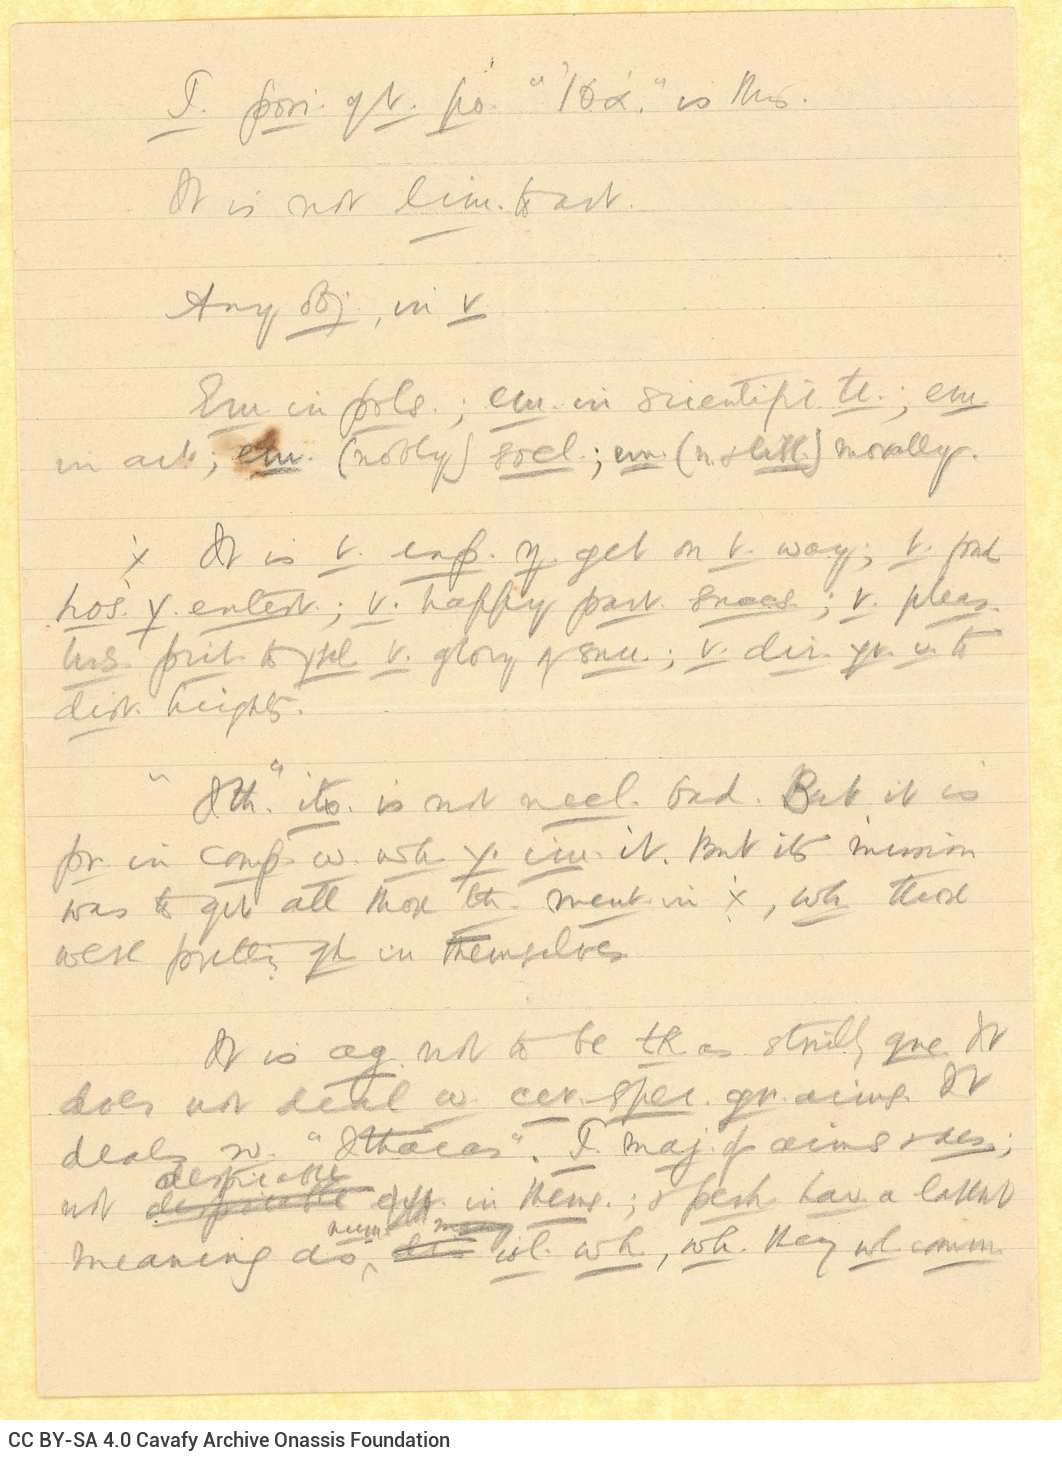 T. posi. of t. po. "Ἰθά." is this.
It is not lim. to art.
Any obj., in v
Em. in pols.; em. in scientific te.; em
in art; em. (nobly) socl.; em. (n & litt) morally.
x It is t. exp. y. get on t. way; t.
hos. y. entert.; t. happy part. ; t. pleas.
hrs. prid. to t. glory of ; t. dir. yr. to
dist. heights.
"Ith." its. is not necl. bad. But it is
pr. in comp. w. wh y. im. it. But its mission
was to get all those th. ment. in x, wh those
were pretty gd in themselves
It is ag. not to be tk as strictly gne It
does not deal w. cer. spec. gr. aims. It
deals w. "Ithacas". T. maj. of aims & des;
not despicable despicable in thems.; & perh have a latent
meaning do, num. many wh., wh. they wl. comm.
CC BY-SA 4.0 Cavafy Archive Onassis Foundation